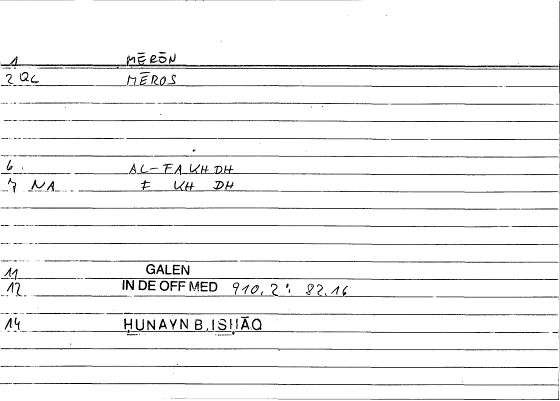 1 MĒRŌN
2 QL MĒROS
6. AL-FAKHDH
7 NA F KH DH
11 GALEN
12 IN DE OFF MED 910,2: 82.16
14 ḤUNAYN B. ISḤĀQ